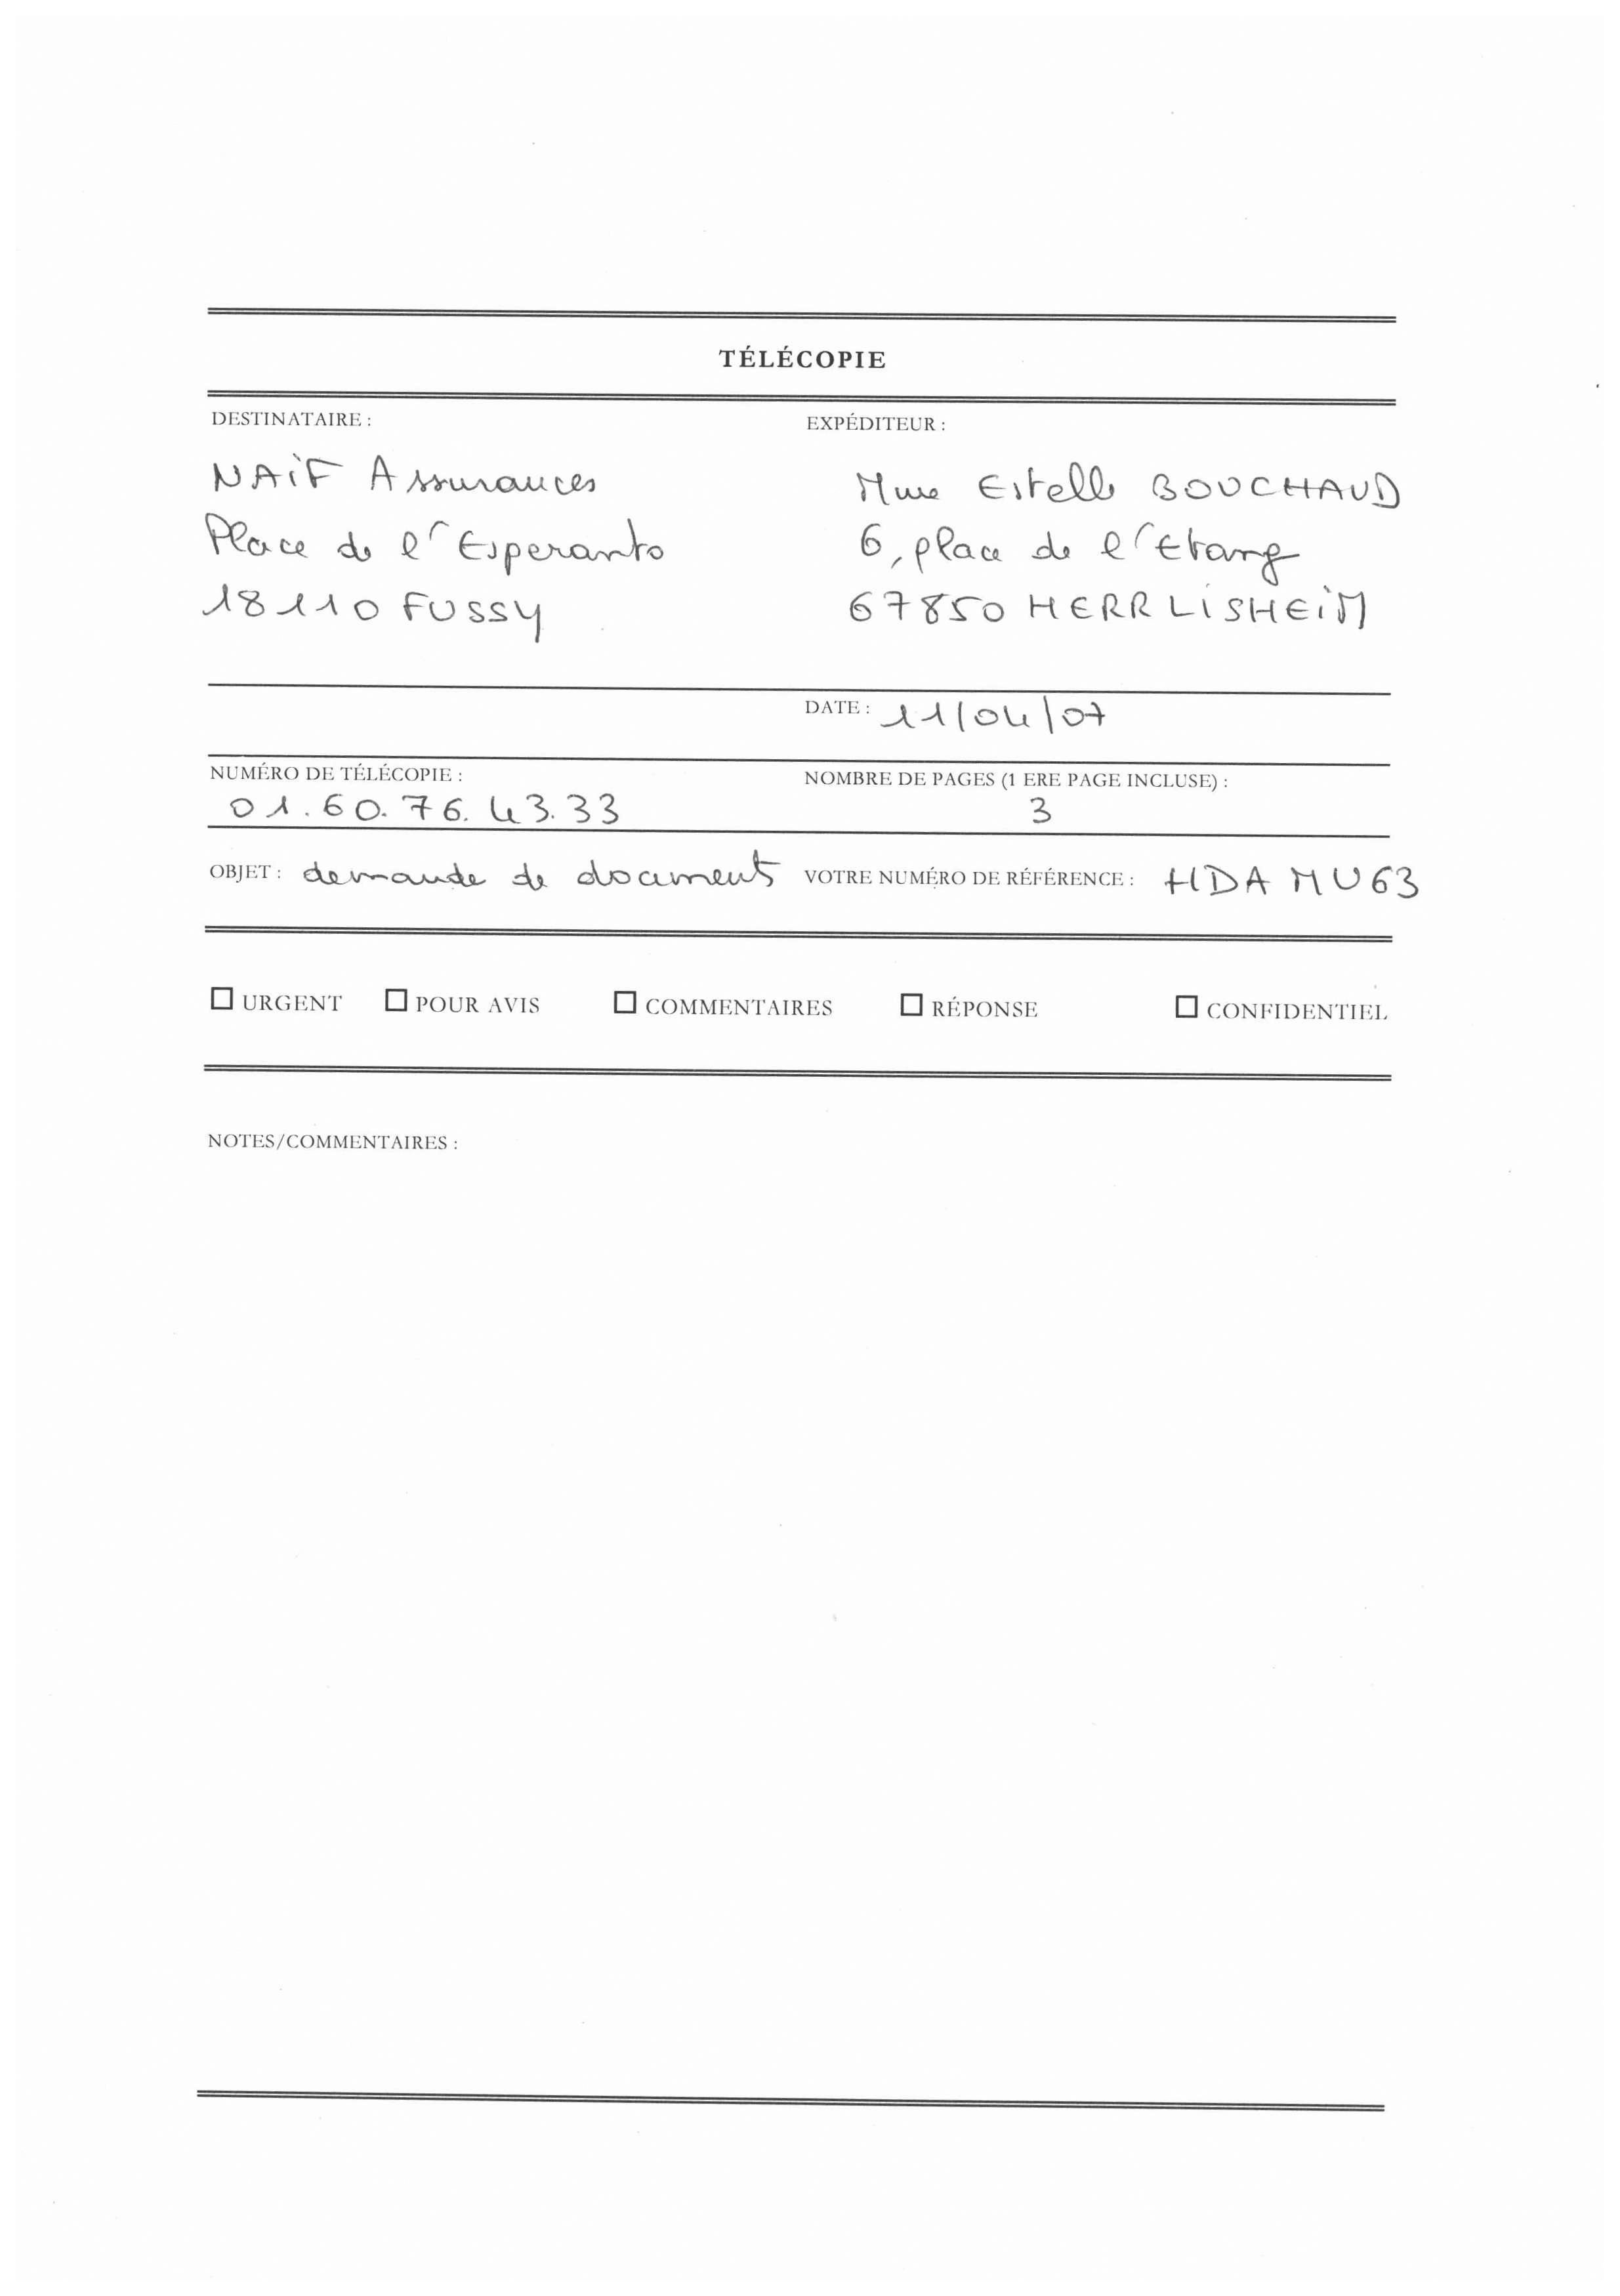 TÉLÉCOPIE
DESTINATAIRE :
NAiF Assurances
Place de l'Esperanto
18110 FUSSY
EXPÉDITEUR :
Mme Estelle BOUCHAUD
6, place de l'Etang
67850 HERRLISHEIM
DATE : 11/04/07
NUMÉRO DE TÉLÉCOPIE :
01.60.76.43.33
NOMBRE DE PAGES (1 ERE PAGE INCLUSE) :
3
OBJET : demande de document
VOTRE NUMÉRO DE RÉFÉRENCE : HDAMU63
☐ URGENT ☐ POUR AVIS ☐ COMMENTAIRES ☐ RÉPONSE ☐ CONFIDENTIEL
NOTES/COMMENTAIRES :